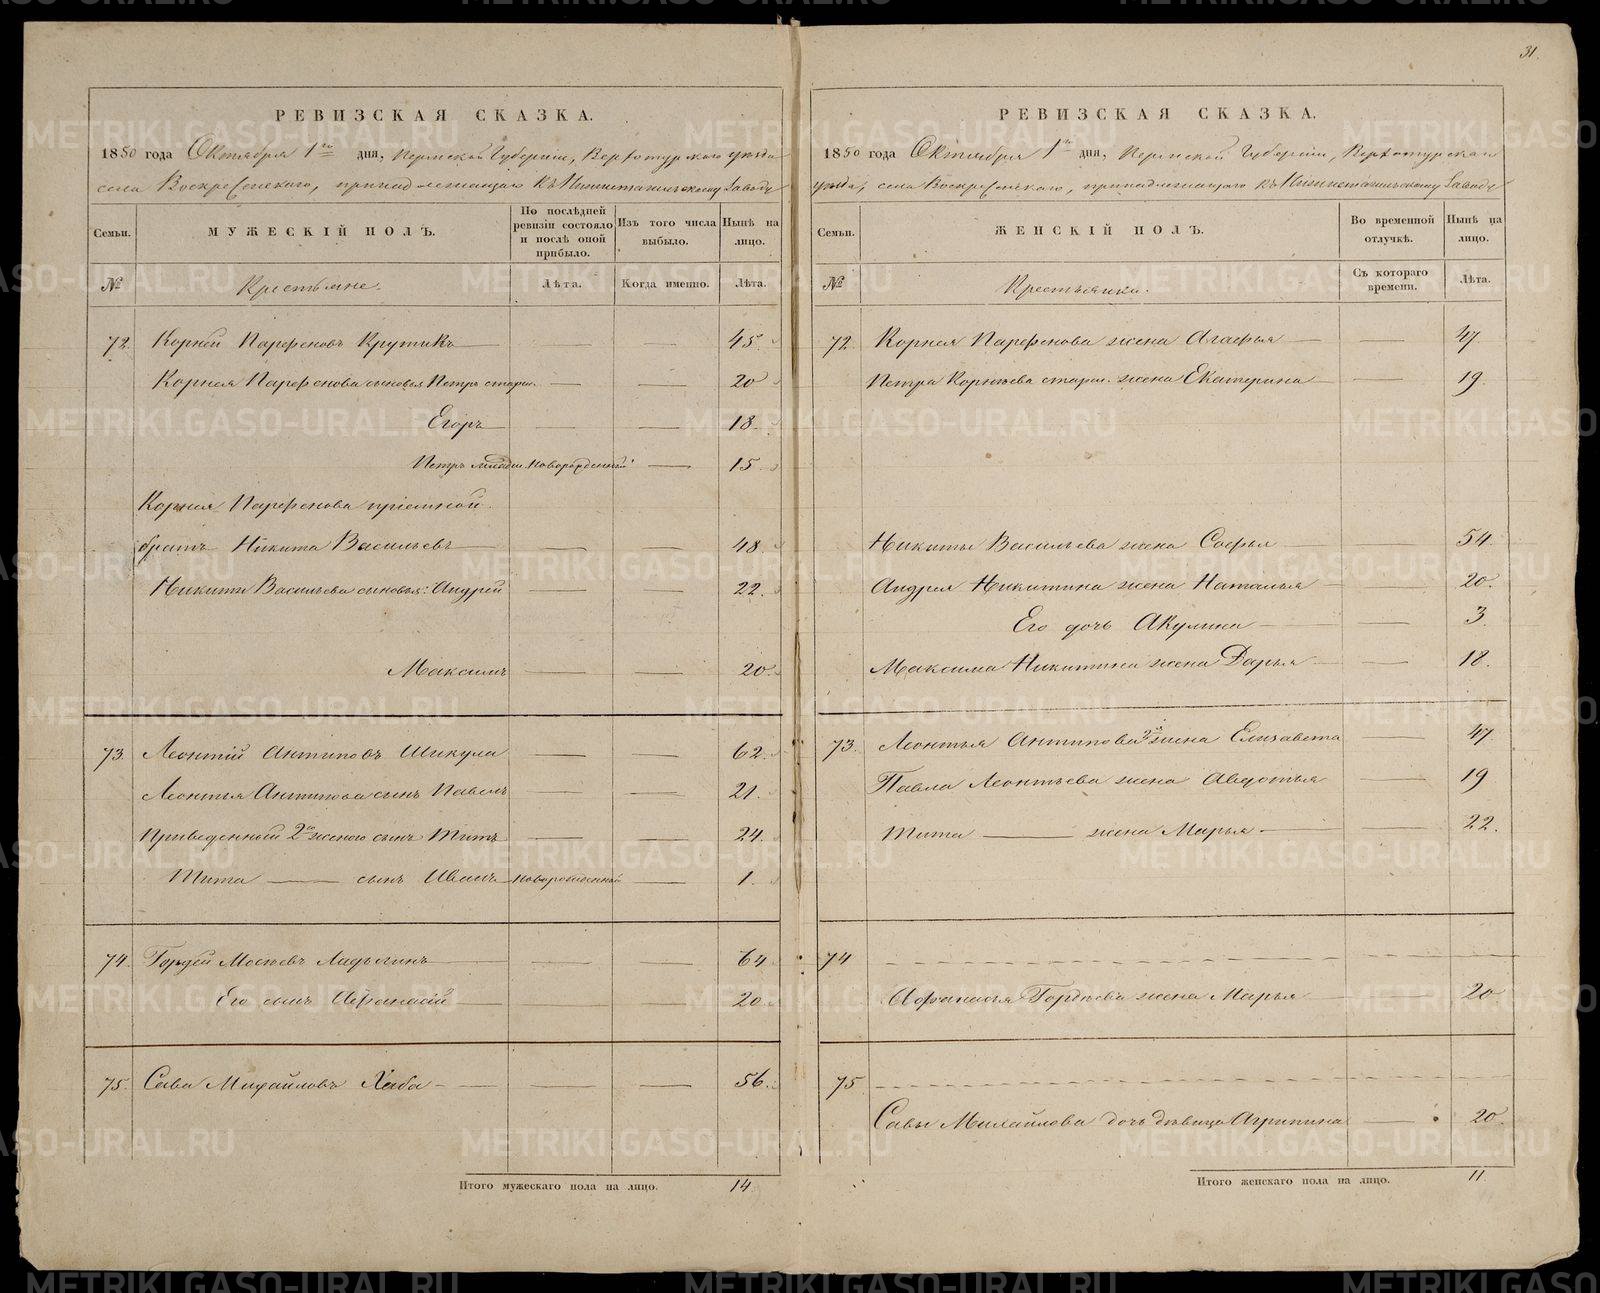 31.
РЕВИЗСКАЯ СКАЗКА.
1850 года Октября 1го дня, Пермской Губернии, Верхотурского уезда
села Воскресенского, принадлежащаго къ Нижнетагильскому Заводу
Семьи.
МУЖЕСКІЙ ПОЛЪ.
По послѣдней ревизіи состояло и послѣ оной прибыло.
Изъ того числа выбыло.
Нынѣ на лицо.
№
Крестьяне.
Лѣта.
Когда именно.
Лѣта.
72. Корней Парфеновъ Крутикъ — — 45.
Корнея Парфенова сыновья Петръ старш. — — 20
Егоръ — — 18.
Петръ младш. Новорожденный — 15.
Корнея Парфенова пріемной
братъ Никита Васильевъ — — 48.
Никиты Васильева сыновья: Андрей — — 22.
Максимъ — — 20.
73. Леонтій Антиповъ Шикула — — 62.
Леонтья Антипова сынъ Павелъ — — 21.
Приведенной 2ю женою сынъ Титъ — — 24.
Тита — сынъ Иванъ Новорожденной — 1.
74. Гордей Мосѣевъ Ладыгинъ — — 64
Его сынъ Афанасій — — 20
75. Сава Михайловъ Хаба — — 56.
Итого мужескаго пола на лицо. 14.
РЕВИЗСКАЯ СКАЗКА.
1850 года Октября 1го дня, Пермской Губерніи, Верхотурскаго
уезда, села Воскресенского, принадлежащаго къ Нижнетагильскому Заводу
Семьи.
ЖЕНСКІЙ ПОЛЪ.
Во временной отлучкѣ.
Нынѣ на лицо.
№
Крестьянки.
Съ котораго времени.
Лѣта.
72. Корнея Парфенова жена Агафья — 47
Петра Корнѣева старш. жена Екатерина — 19.
Никиты Васильева жена Софья — 54
Андрея Никитина жена Наталья — 20.
Его дочь Акулина — 3.
Максима Никитина жена Дарья — 18.
73. Леонтья Антипова 2я жена Елизавета — 47
Павла Леонтьева жена Авдотья — 19
Тита — жена Марья — 22.
74
Афанасья Гордѣева жена Марья — 20
75
Савы Михайлова дочь дѣвица Агрипина — 20.
Итого женскаго пола на лицо. 11.
METRIKI.GASO-URAL.RU